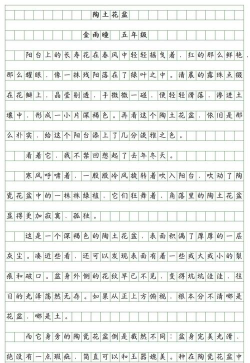 陶土花盆
金雨曈 五年级
阳台上的长寿花在春风中轻轻摇曳着，红的那么鲜艳，
那么耀眼，像一抹残阳落在了绿叶之中。清晨的露珠点缀
在花瓣上，晶莹剔透，手微微一碰，便轻轻滑落，渗进土
壤中，形成一小片深褐色。再看这个陶土花盆，依旧是那
么朴实，给这个阳台添上了几分淡雅之色。
看着它，我不禁回想起了去年冬天。
寒风呼啸着，一股股冷风旋转着吹入阳台，吹动了陶
瓷花盆中的一株株绿植，它们狂舞着，角落里的陶土花盆
显得更加寂寞、孤独。
这是一个深褐色的陶土花盆，表面积满了厚厚的一层
灰尘。凑近些看，还可以发现表面有着一些或大或小的裂
痕和破口。盆身外侧的花纹早已不见，变得坑坑洼洼，往
日的光泽荡然无存。如果从正上方俯视，根本分不清哪是
花盆，哪是土。
而它身旁的陶瓷花盆倒是截然不同：盆身完美光滑，
绝没有一点瑕疵，简直可以和玉器媲美。种在陶瓷花盆中